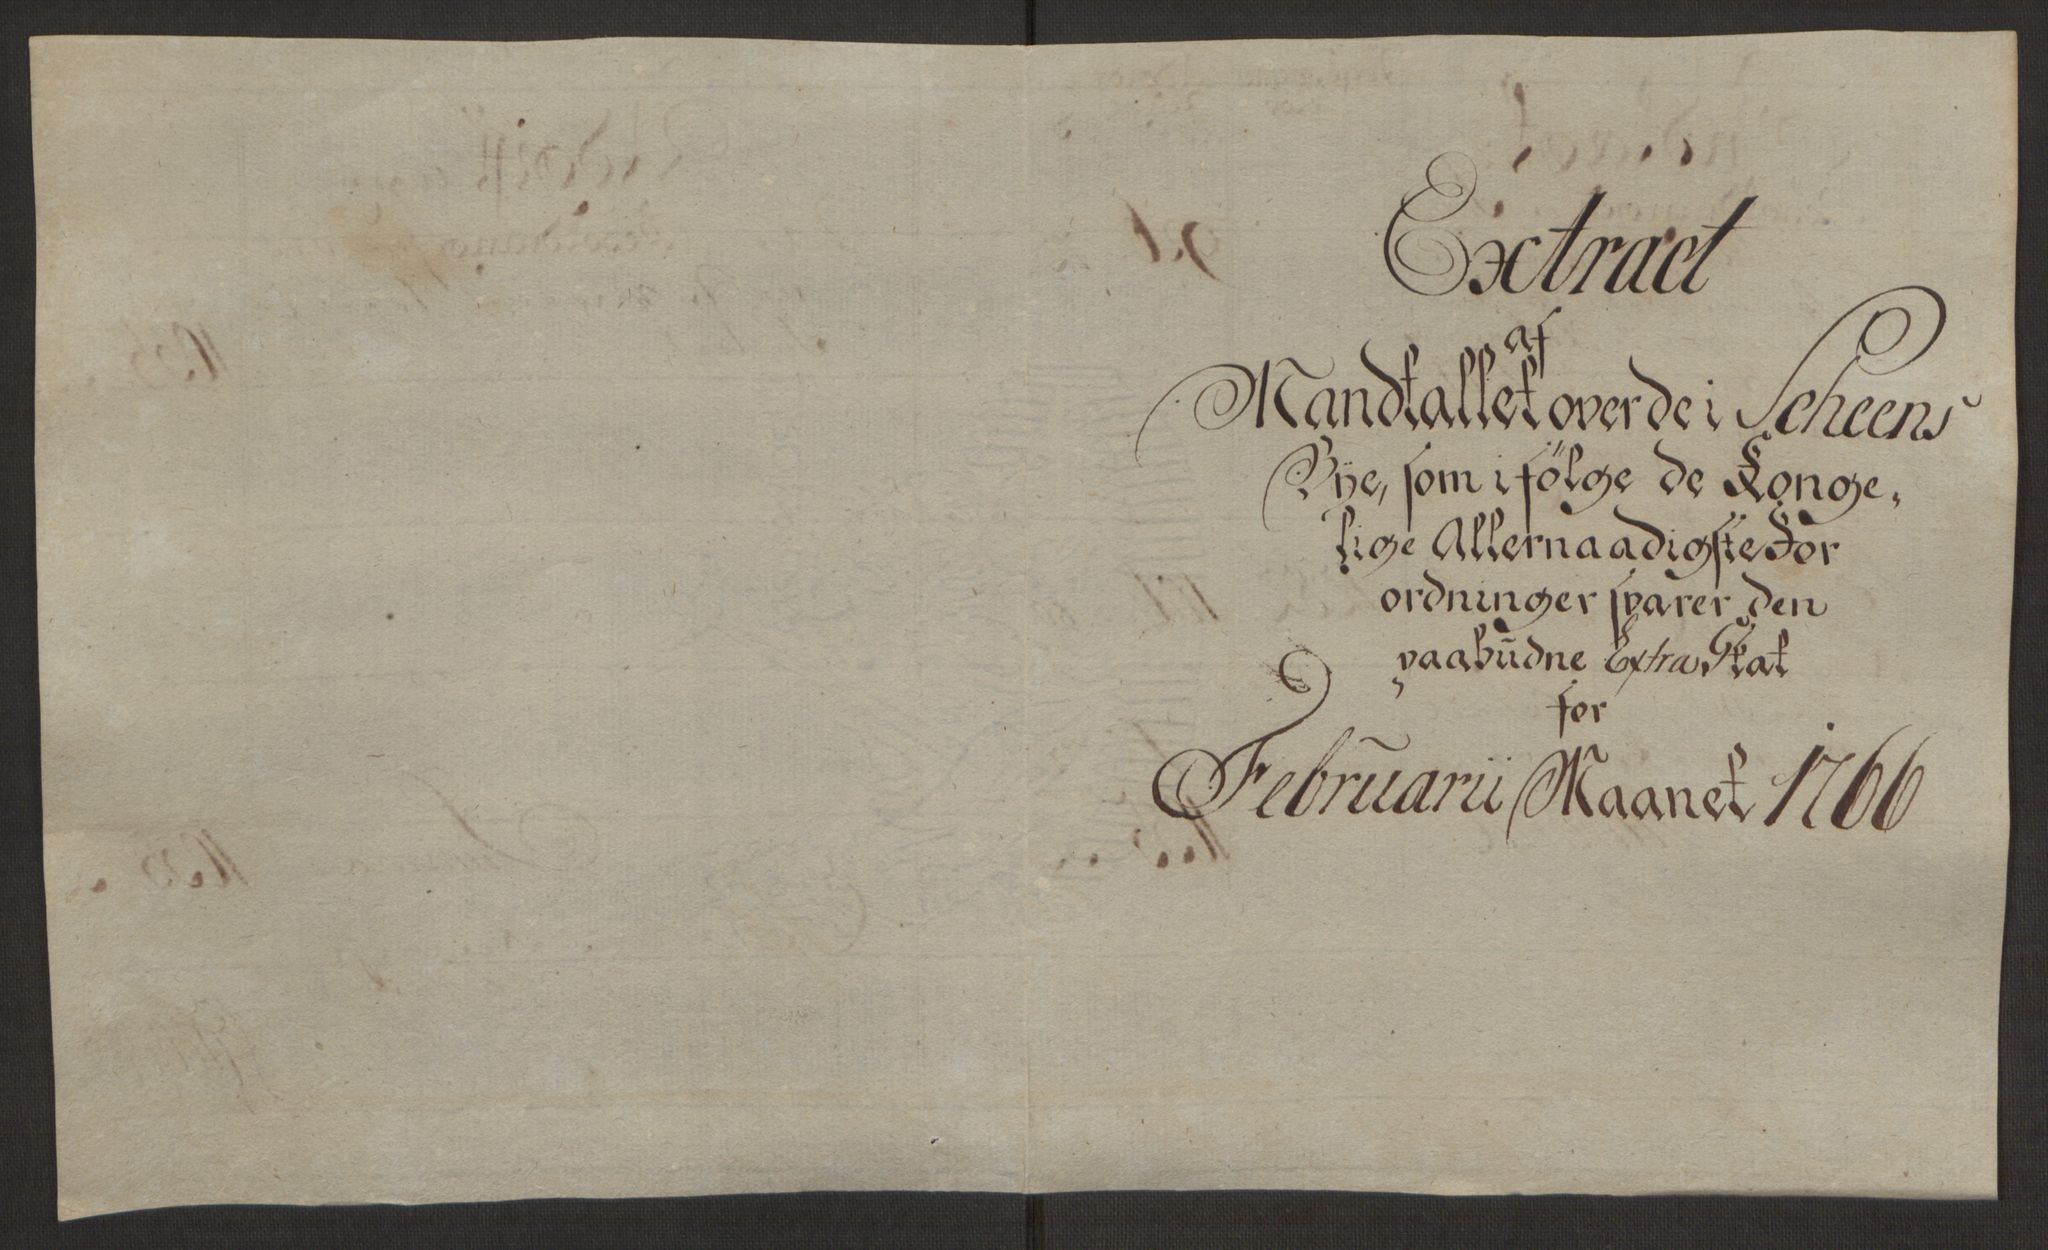 Extract
af
Mandtallet over de i Scheens
Bÿe, som i følge de Konge-
lige Allernaadigste For
ordninger svarer den
paabudne Extra Skat
for
Februarii Maanet 1766